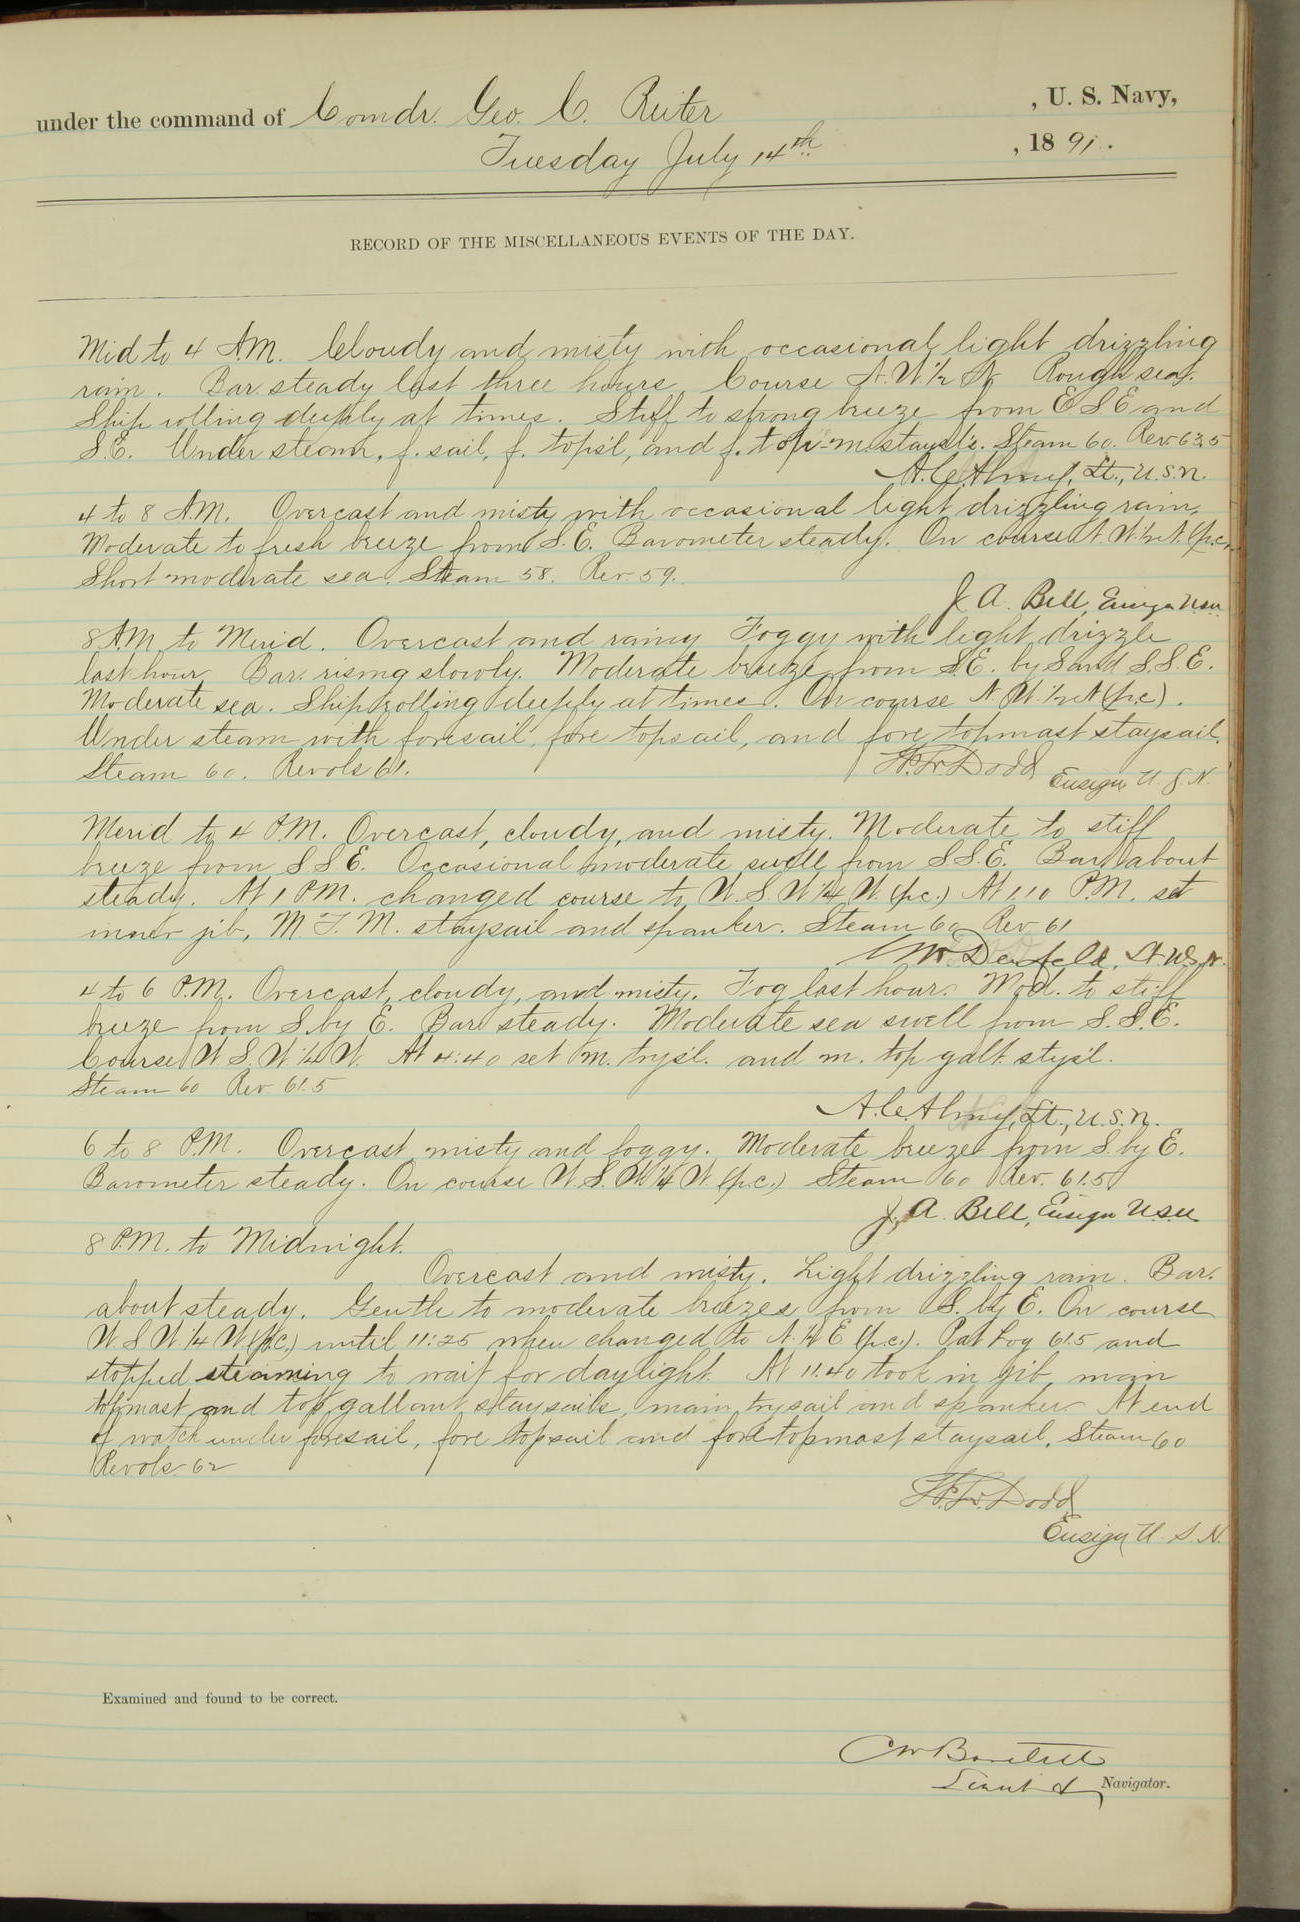 under the command of Comdr. Geo. C. Reiter , U. S. Navy,
Tuesday July 14th , 1891.
RECORD OF THE MISCELLANEOUS EVENTS OF THE DAY.
Mid to 4 AM. Cloudy and misty with occasional light drizzling
rain. Bar. steady last three hours. Course N.W. 1/2 N. Rough sea.
Ship rolling deeply at times. Stiff to strong breeze from ESE and
S.E. Under steam, f. sail, f. tops'l, and f. top-m. stays'ls. Steam 60. Rev 63.5
A.C. Almy, Lt., U.S.N.
4 to 8 A.M. Overcast and misty with occasional light drizzling rain.
Moderate to fresh breeze from S.E. Barometer steady. On course N.W. 1/2 N. (p.c.)
Short moderate sea. Steam 58. Rev. 59.
J. A. Bell, Ensign USN
8 A.M. to Merid. Overcast and rainy Foggy with light drizzle
last hour. Bar. rising slowly. Moderate breeze from S.E. by S and S.S.E.
Moderate sea. Ship rolling deeply at times. On course N.W. 1/2 N (p.c.).
Under steam with foresail, fore topsail, and fore topmast staysail.
Steam 60. Revols 61.
Dodd Ensign U.S.N.
Merid to 4 P.M. Overcast, cloudy, and misty. Moderate to stiff
breeze from S S E. Occasional moderate swell from S.S.E. Bar. about
steady. At 1 P.M. changed course to W.S.W 1/4 W. (p.c.) At 1.10 P.M. set
inner jib, M.T.M. staysail and spanker. Steam 60 Rev 61
Denfeld, Lt. U.S.N.
4 to 6 P.M. Overcast, cloudy, and misty. Fog last hour. Mod. to stiff
breeze from S. by E. Bar. steady. Moderate sea swell from S.S.E.
Course W.S.W. 1/4 W. At 4:40 set m. trys'l. and m. top galt. stys'l.
Steam 60 Rev. 61.5
A.C. Almy, Lt., U.S.N.
6 to 8 P.M. Overcast, misty and foggy. Moderate breeze from S. by E.
Barometer steady. On course W.S.W 1/4 W (p.c.) Steam 60 Rev. 61.5
J. A. Bell, Ensign USN
8 P.M. to Midnight.
Overcast and misty. Light drizzling rain. Bar.
about steady. Gentle to moderate breezes from S. by E. On course
W S W 1/4 W (p.c.) until 11:25 when changed to N. 1/4 E (p.c.). Pat Log 61.5 and
stopped steaming to wait for daylight. At 11.40 took in jib, main
topmast and top gallant staysails, main trysail and spanker. At end
of watch under foresail, fore topsail and fore topmast staysail. Steam 60
Revols. 62
Dodd
Ensign U.S.N.
Examined and found to be correct.
C W Bartlett
Lieut & Navigator.